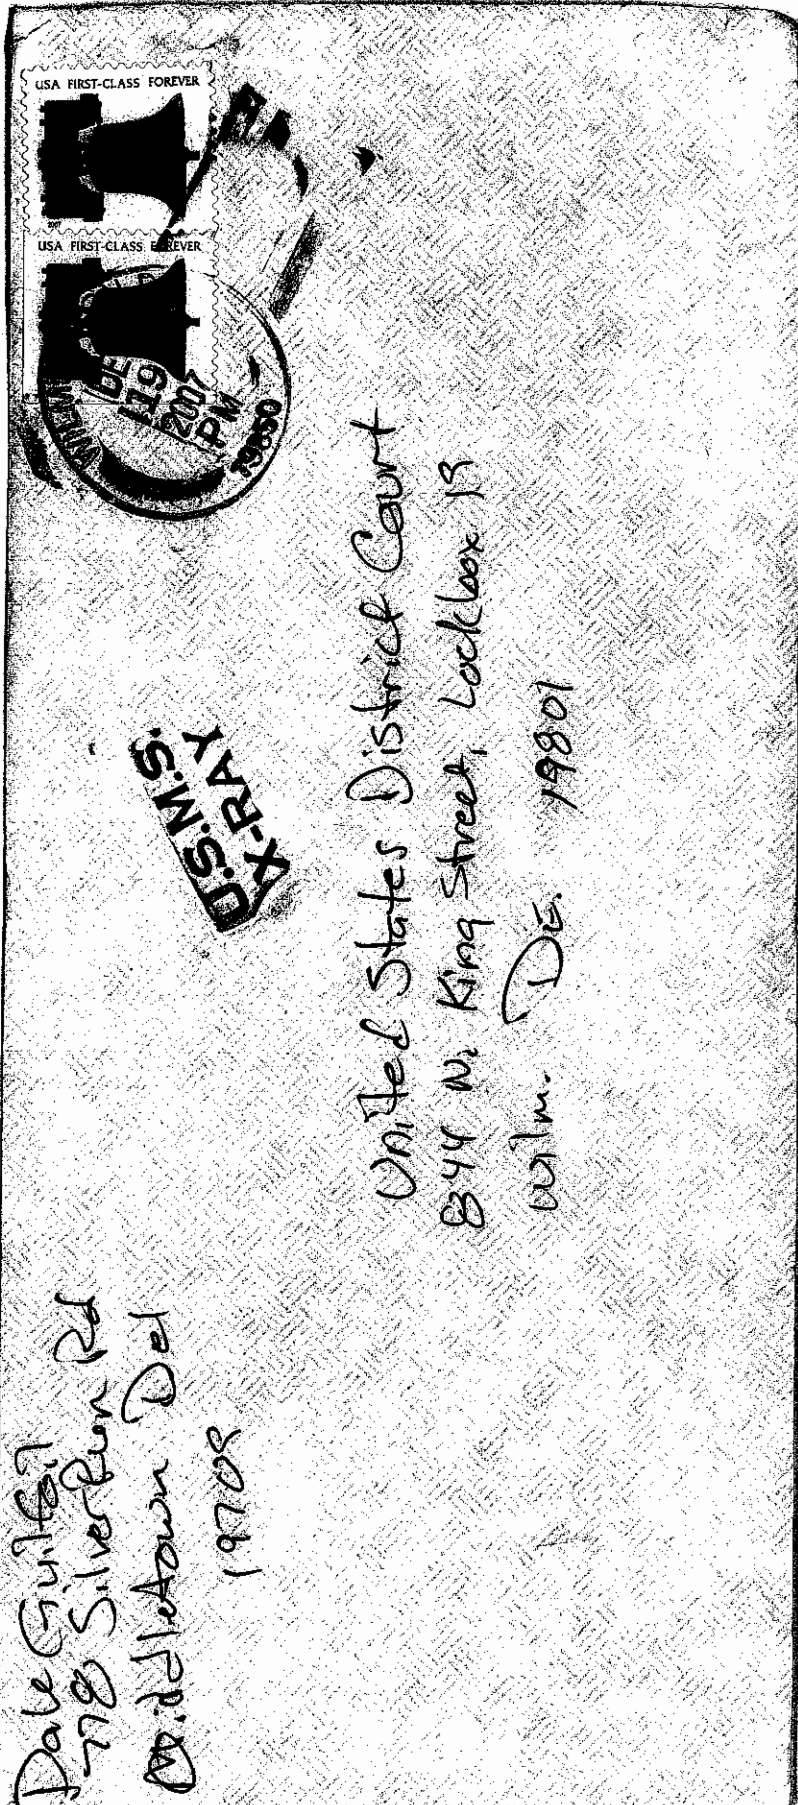 Dale Guilfoil
778 Silver Run Rd
Middletown Del
19709
USA FIRST-CLASS FOREVER
2007
USA FIRST-CLASS FOREVER
WILM
DE
19
2007
PM
U.S.M.S.
X-RAY
United States District Court
844 N. King Street, Lockbox 19
Wilm. De. 19801